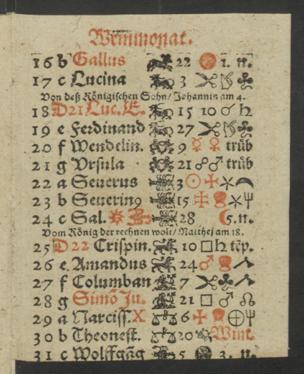 Weinmonat.
16 b Gallus 22 1. n.
17 c Lucina 3
Von deß Königischen Sohn / Johannis am 4.
18 D 21 Luc. E. 15 10 ☌ ♄
19 e Ferdinand 27
20 f Wendelin. 9 ☿ ♀ trüb
21 g Vrsula 21 ☍ ♂ trüb
22 a Seuerus 3 ☉
23 b Seuerin9 15
24 c Sal. 28 ☾ 5. n.
Vom König der rechnen wolt / Matthei am 18.
25 D 22 Crispin. 10 □ ♄ tēp.
26 e Amandus 24 ♂
27 f Columban 7
28 g Simō Ju. 21 □ ♂ ☊
29 a Narciss. X 6
30 b Theonest. 20 Wint.
31 c Wolffgāg 5 3. n.